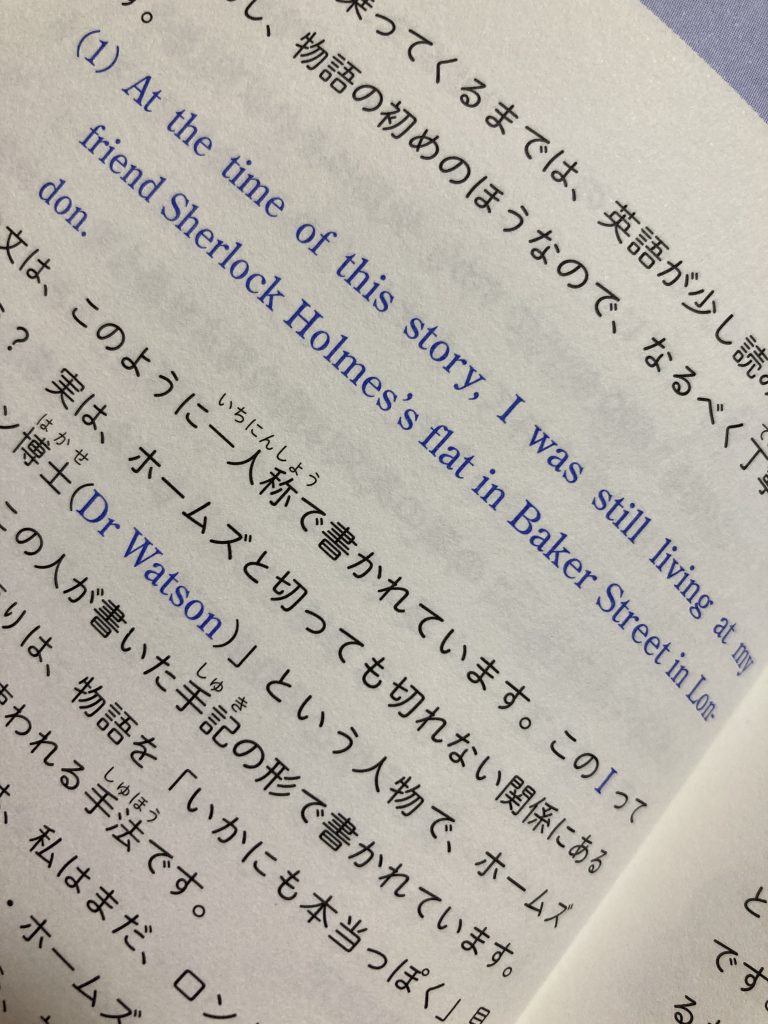 乗ってくるまでは、英語が少し読
し、物語の初めのほうなので、なるべく丁寧
す。
(1) At the time of this story, I was still living at my
friend Sherlock Holmes's flat in Baker Street in Lon-
don.
文は、このように一人称で書かれています。このIって
いちにんしょう
？　実は、ホームズと切っても切れない関係にある
ン博士(Dr Watson)」という人物で、ホームズ
はかせ
この人が書いた手記の形で書かれています。
しゅき
りは、物語を「いかにも本当っぽく」
われる手法です。
しゅほう
、私はまだ、ロン
・ホームズ
と
です
る